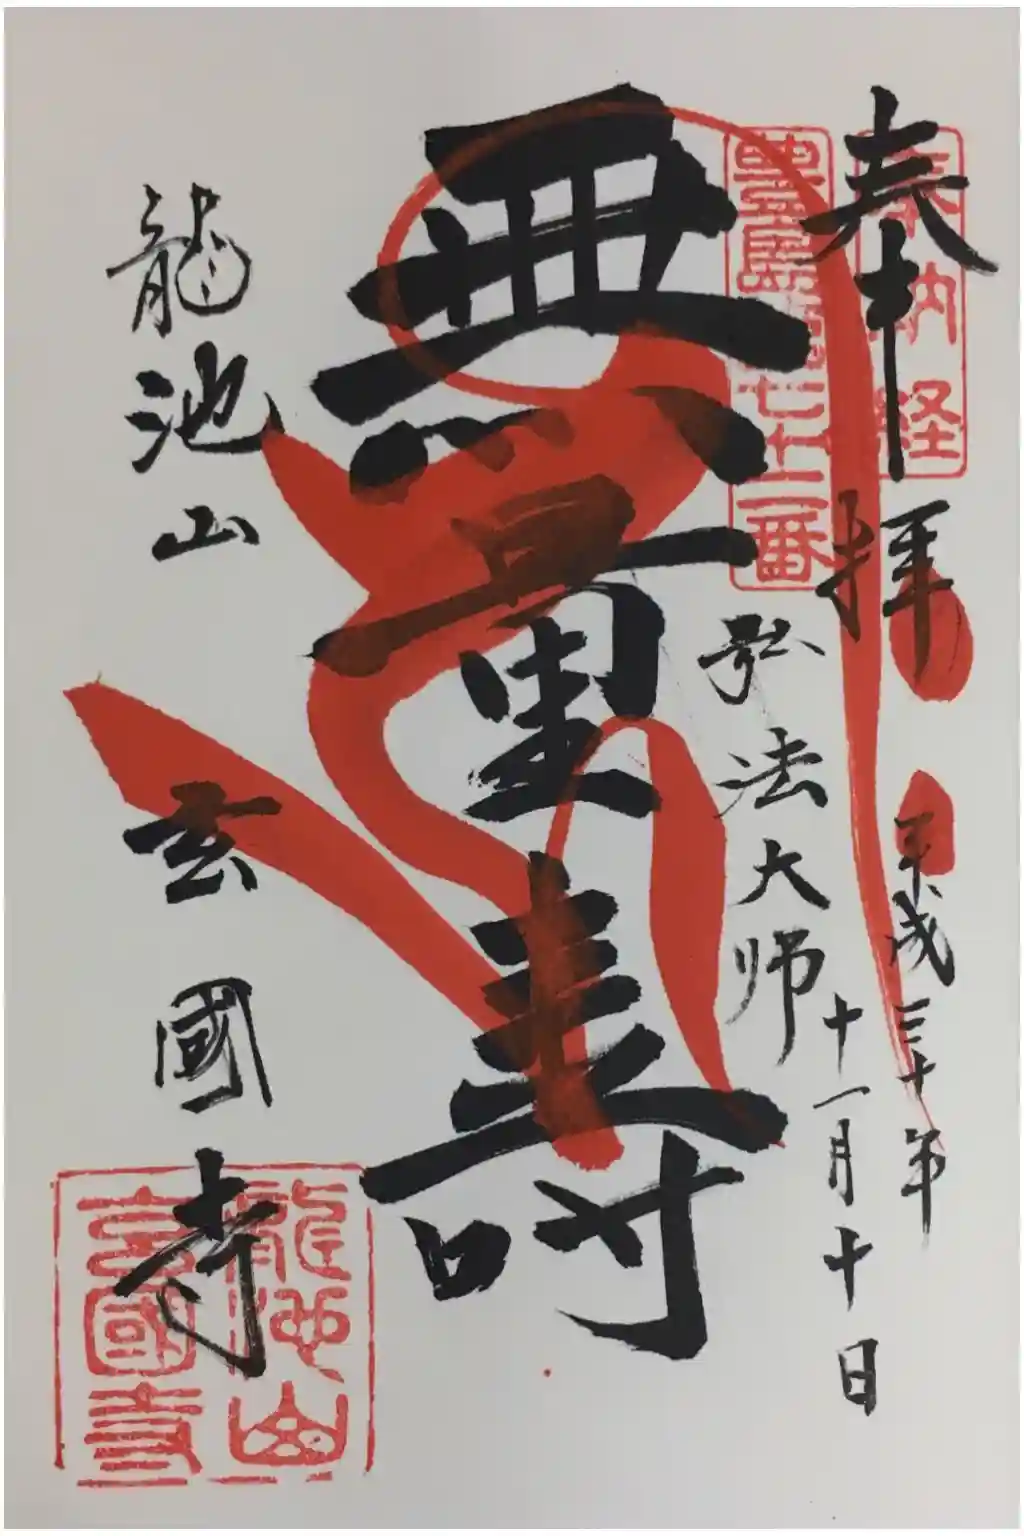 奉拝
平成三十年
十一月十日
奉納経
豊島第七十二番
弘法大師
無量壽
龍池山
玄國寺
龍池山
玄國寺